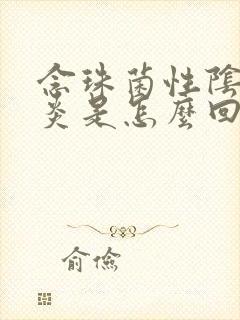 念珠菌性陰
炎是怎麼回
俞儉